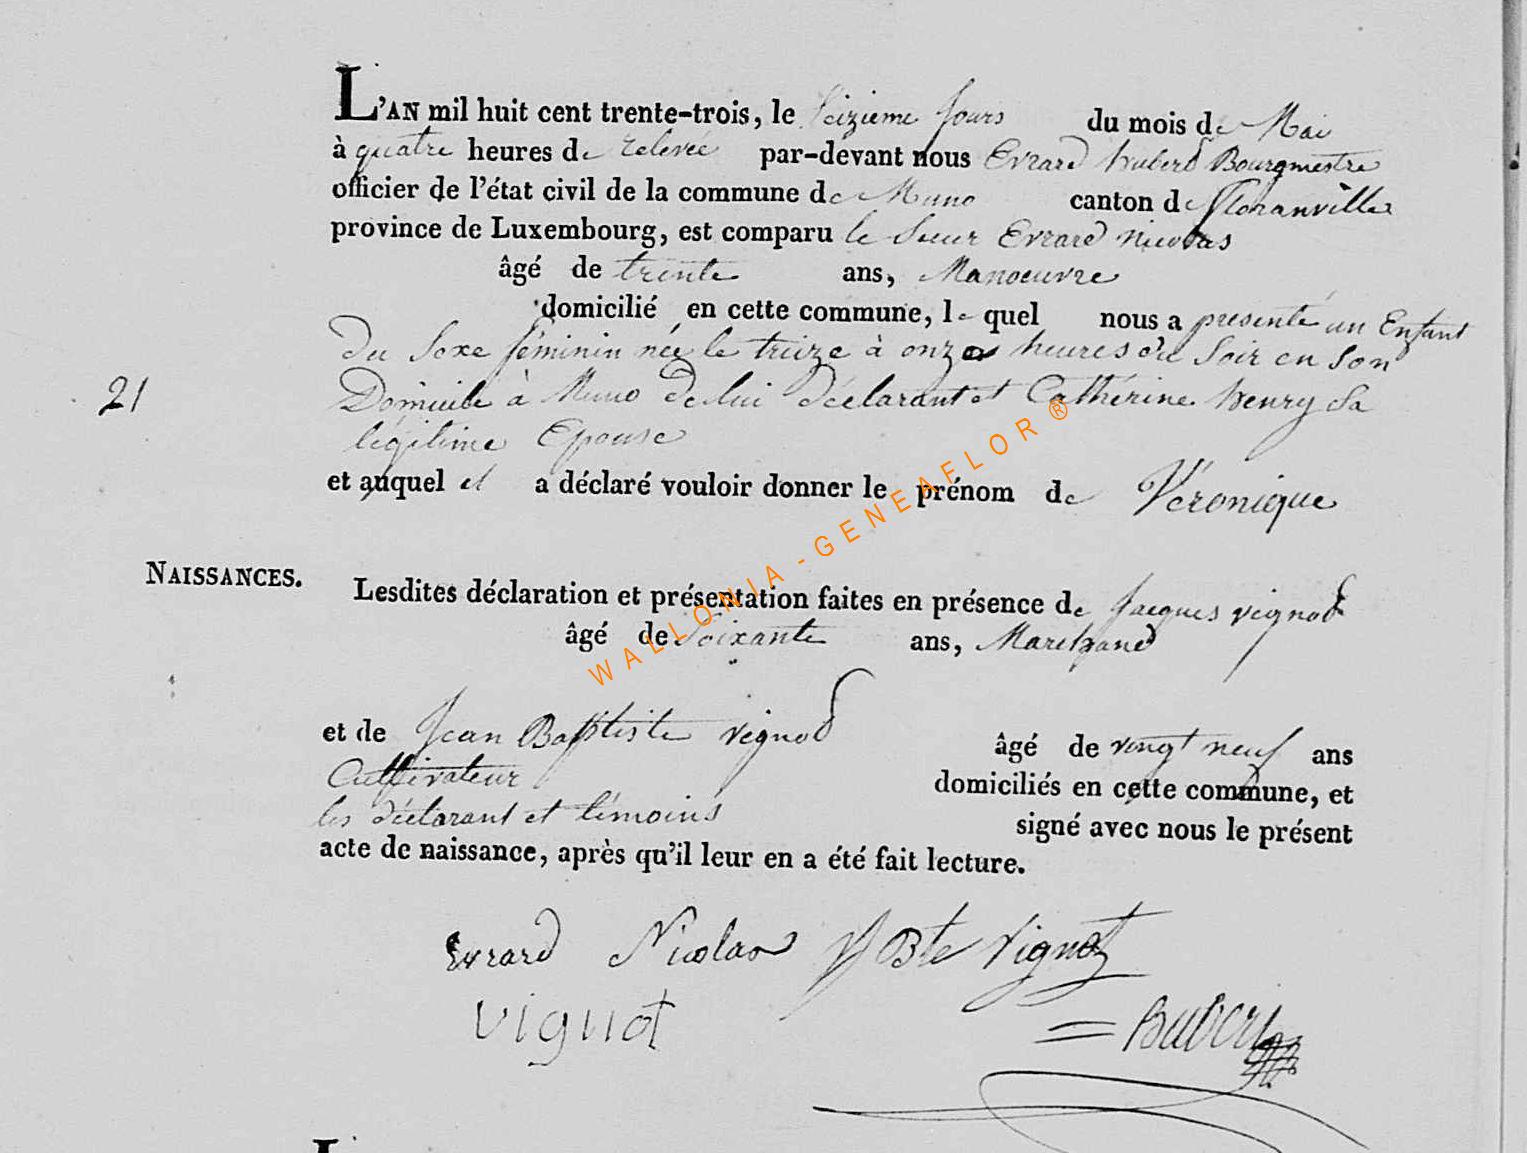 L'AN mil huit cent trente-trois, le Seizieme Jours du mois de Mai
à quatre heures de relevée par-devant nous Evrard huberd Bourgmestre
officier de l'état civil de la commune de Muno canton de Floranville
province de Luxembourg, est comparu le Sieur Evrard nicolas
âgé de trente ans, Manoeuvre
domicilié en cette commune, le quel nous a presenté un Enfant
du Sexe féminin née le treize à onze heures du Soir en Son
21
Domicile à Muno de lui déclarant et Cathérine henry Sa
légitime Epouse
et auquel il a déclaré vouloir donner le prénom de Véronique
NAISSANCES.
Lesdites déclaration et présentation faites en présence de Jacques vignod
âgé de Soixante ans, Marchand
et de Jean Baptiste vignod âgé de vingt neuf ans
Cultivateur domiciliés en cette commune, et
les déclarant et témoins signé avec nous le présent
acte de naissance, après qu'il leur en a été fait lecture.
Evrard Nicolas J Bte Vignot
vignot
WALLONIA - GENEAFLOR ®